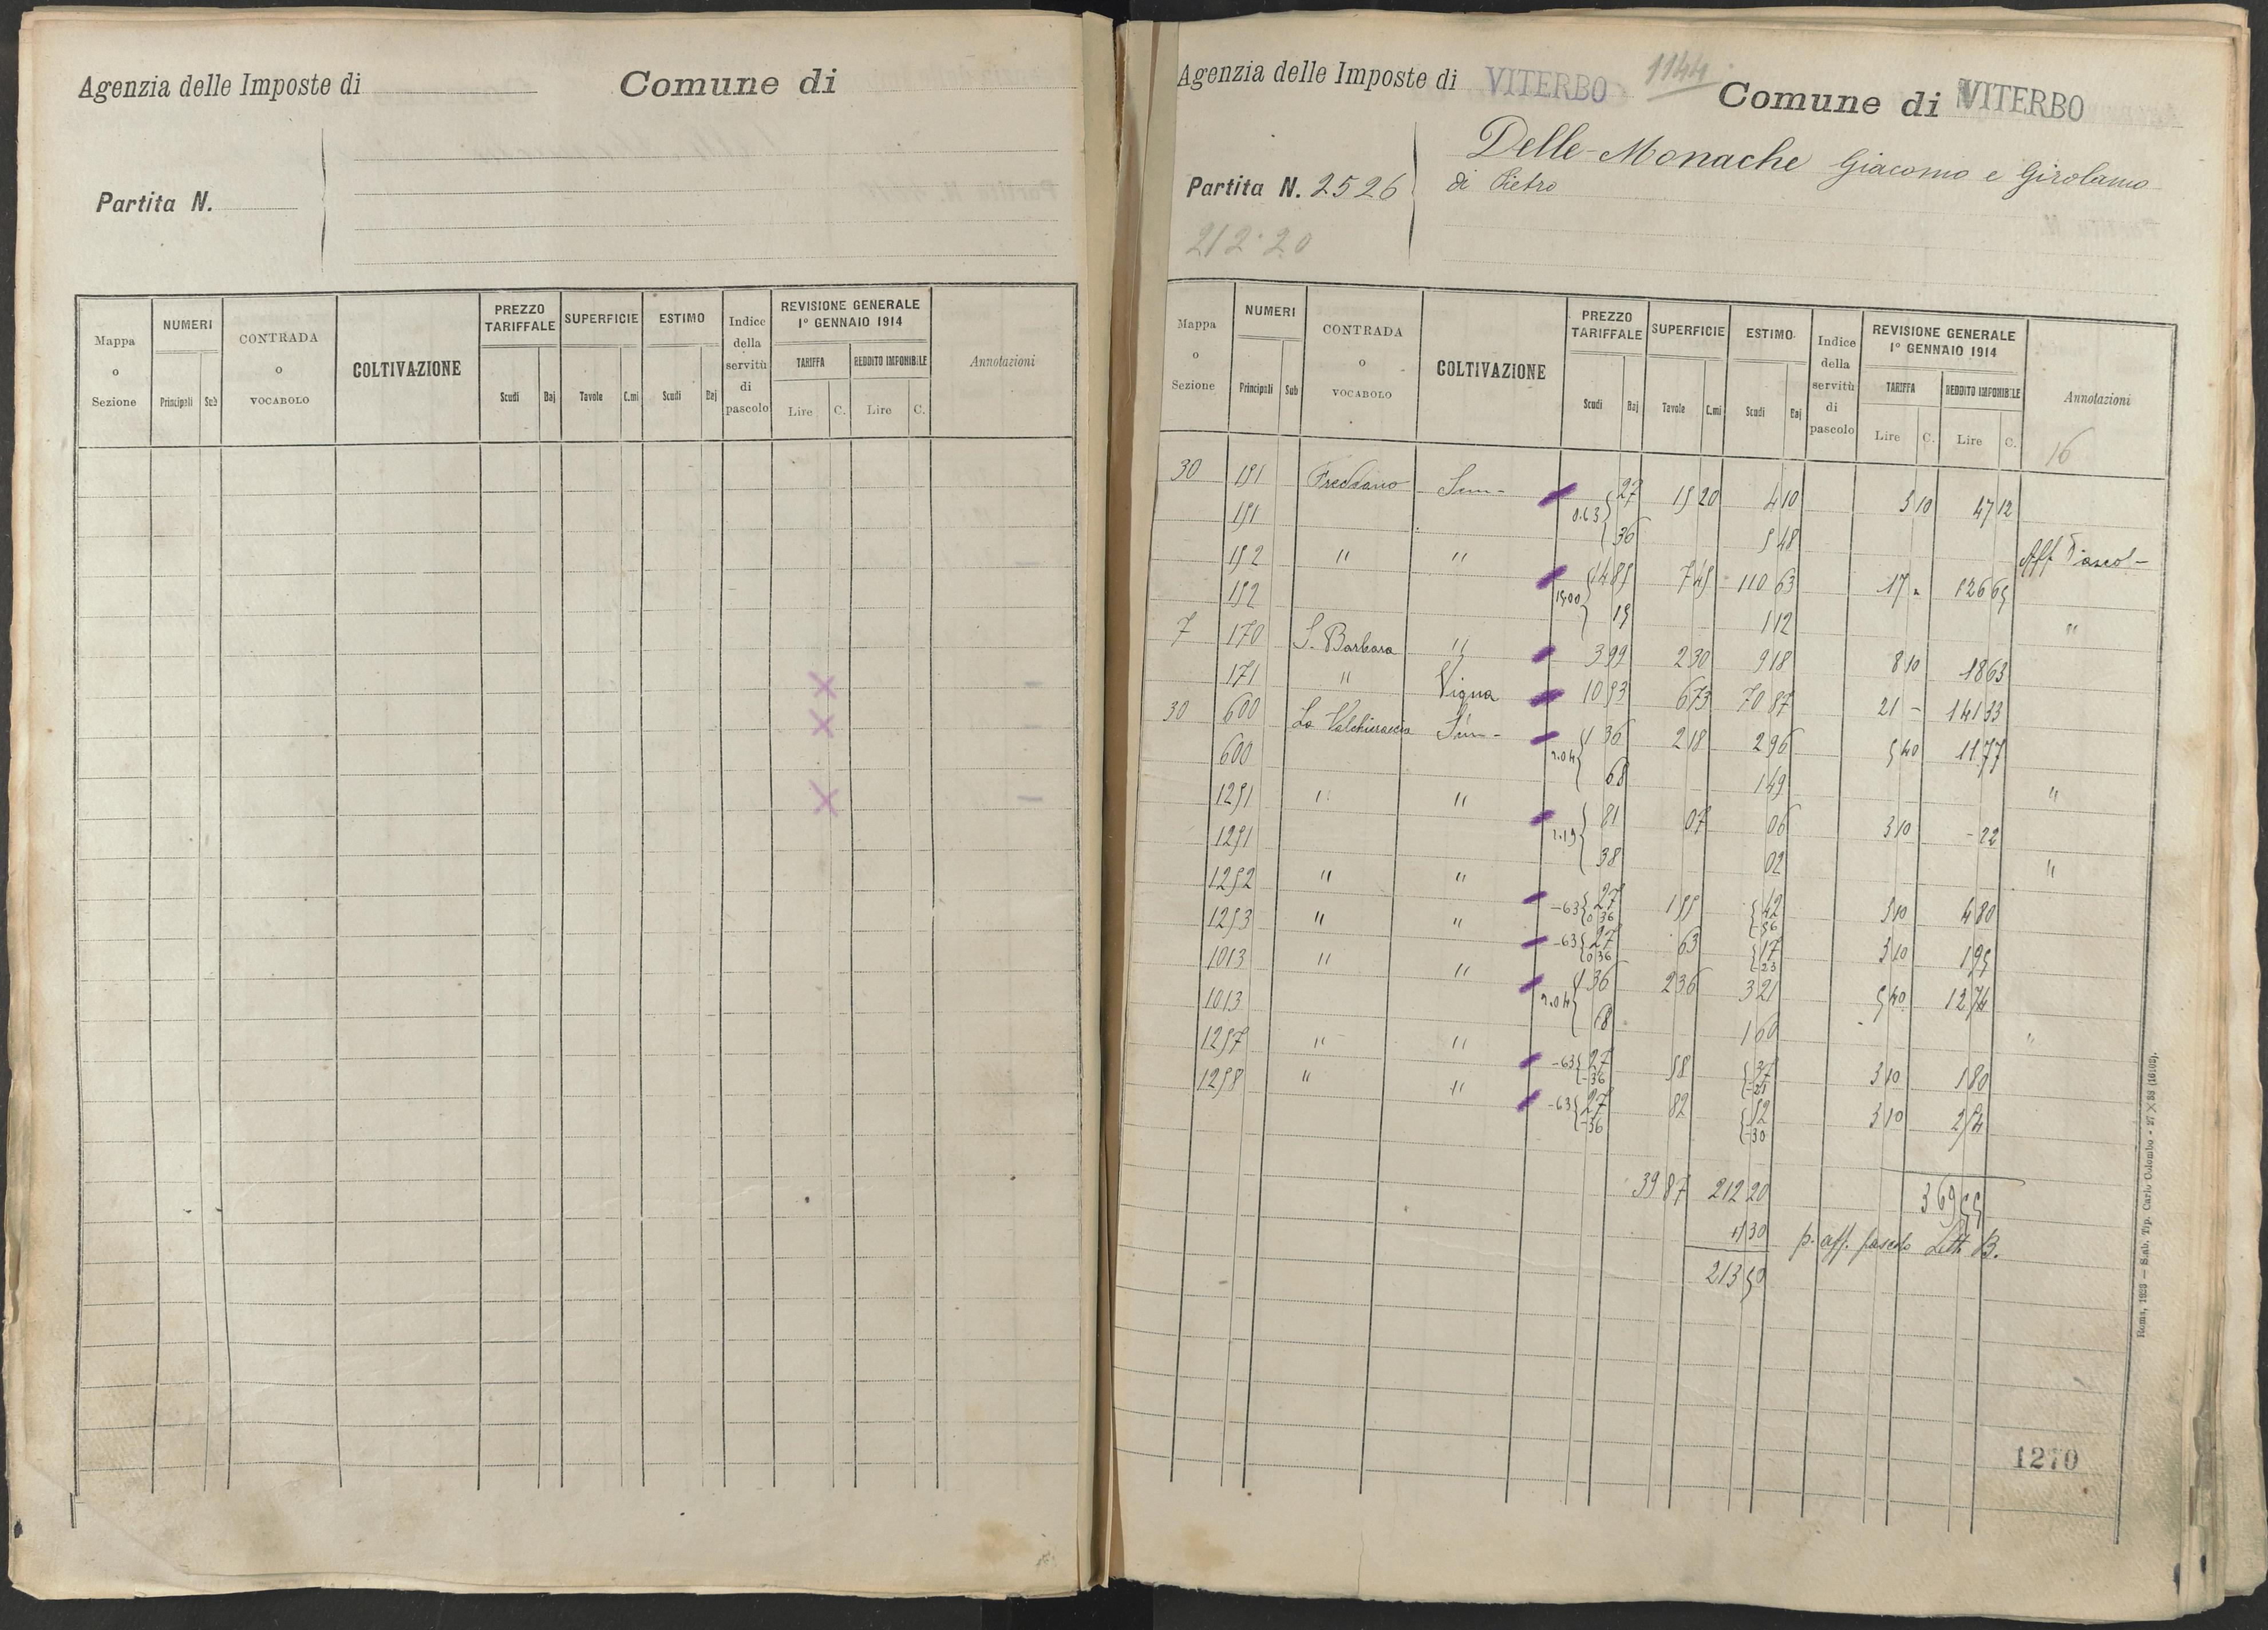 Agenzia delle Imposte di Comune di
Partita N.
Mappa o Sezione NUMERI Principali Sub CONTRADA o VOCABOLO COLTIVAZIONE PREZZO TARIFFALE Scudi Baj SUPERFICIE Tavole C.mi ESTIMO Scudi Baj Indice della servitù di pascolo REVISIONE GENERALE 1° GENNAIO 1914 TARIFFA Lire C. REDDITO IMPONIBILE Lire C. Annotazioni
Agenzia delle Imposte di VITERBO 1144 Comune di VITERBO
Delle Monache Giacomo e Girolamo
Partita N. 2526 di Pietro
212.20
Mappa o Sezione NUMERI Principali Sub CONTRADA o VOCABOLO COLTIVAZIONE PREZZO TARIFFALE Scudi Baj SUPERFICIE Tavole C.mi ESTIMO Scudi Baj Indice della servitù di pascolo REVISIONE GENERALE 1° GENNAIO 1914 TARIFFA Lire C. REDDITO IMPONIBILE Lire C. Annotazioni
16
30 151 Freddano Sem- 27 15 20 4 10 3 10 47 12
151 0.63 36 5 48 Aff Pascol-
152 " " 14 85 7 45 110 63 17 - 126 65
152 15.00 15 1 12 "
7 170 S. Barbara " 3 99 2 30 9 18 8 10 18 63
171 " Vigna 10 53 6 73 70 87 21 - 141 33
30 600 La Valchieraccia Sem- 1 36 2 18 2 96 5 40 11 77
600 2.04 68 1 49 "
1251 " " 81 07 06 3 10 - 22
1251 1.19 38 02 "
1252 " " -63 27 0 36 1 55 42 -56 3 10 4 80
1253 " " -63 27 0 36 63 17 -23 3 10 1 95
1013 " " 1 36 2 36 3 21 5 40 12 74
1013 2.04 68 1 60 "
1257 " " -63 27 -36 58 37 -21 3 10 1 80
1258 " " -63 27 -36 82 52 -30 3 10 2 54
39 87 212 20 369 55
+1 30 p. aff. pascolo Lett B.
213 50
1270
Roma, 1923 — Stab. Tip. Carlo Colombo - 27 × 38